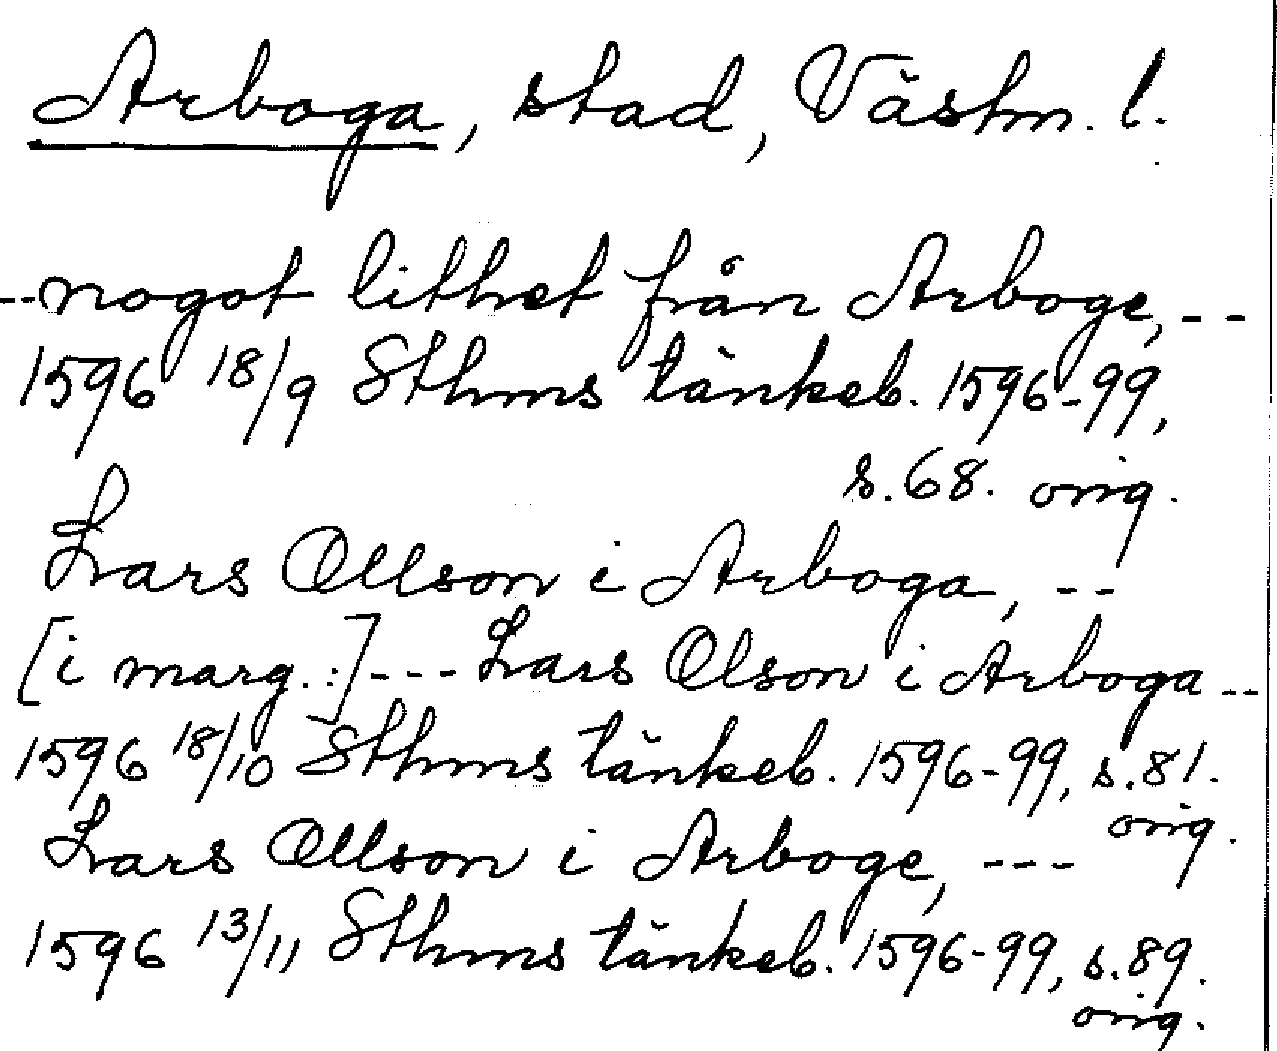 Arboga, stad, Västm. l.
--nogot lithet från Arboge, --
1596 18/9 Sthms tänkeb. 1596-99,
s.68. orig.
Lars Ollson i Arboga, --
[i marg.:]--- Lars Olson i Arboga --
1596 18/10 Sthms tänkeb. 1596-99, s.81.
orig.
Lars Ollson i Arboge, ---
1596 13/11 Sthms tänkeb. 1596-99, s.89.
orig.